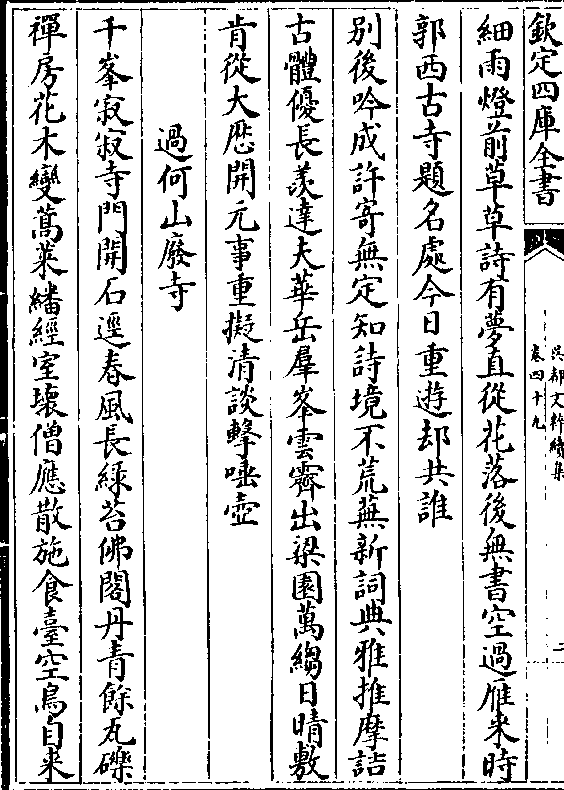 欽定四庫全書
吳都文粹續集
卷四十九
二
細雨燈前草草詩有夢直從花落後無書空過雁来時
郭西古寺題名處今日重遊却共誰
別後吟成許寄無定知詩境不荒蕪新詞典雅推摩詰
古體優長羨達夫華岳羣峯雲霽出梁園萬縐日晴敷
肯從大厯開元事重擬清談擊唾壺
過何山廢寺
千峯寂寂寺門開石逕春風長綠苔佛閣丹青餘瓦礫
禪房花木變蒿萊繙經室壞僧應散施食臺空鳥自来